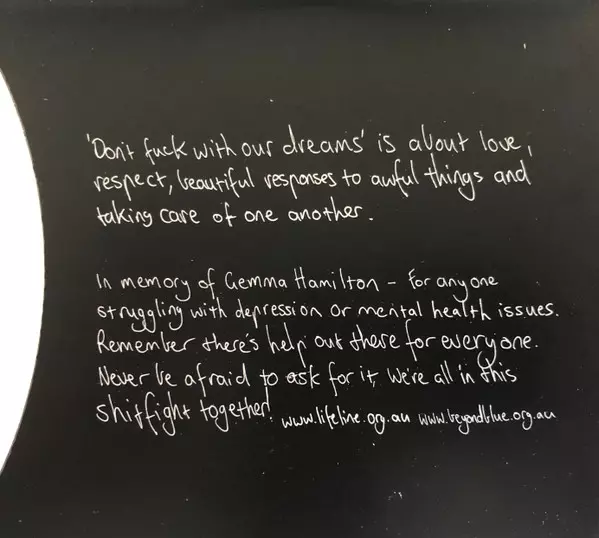 'Don't fuck with our dreams' is about love,
respect, beautiful responses to awful things and
taking care of one another.
In memory of Gemma Hamilton - For anyone
struggling with depression or mental health issues.
Remember there's help out there for everyone.
Never be afraid to ask for it, we're all in this
shitfight together! www.lifeline.org.au www.beyondblue.org.au